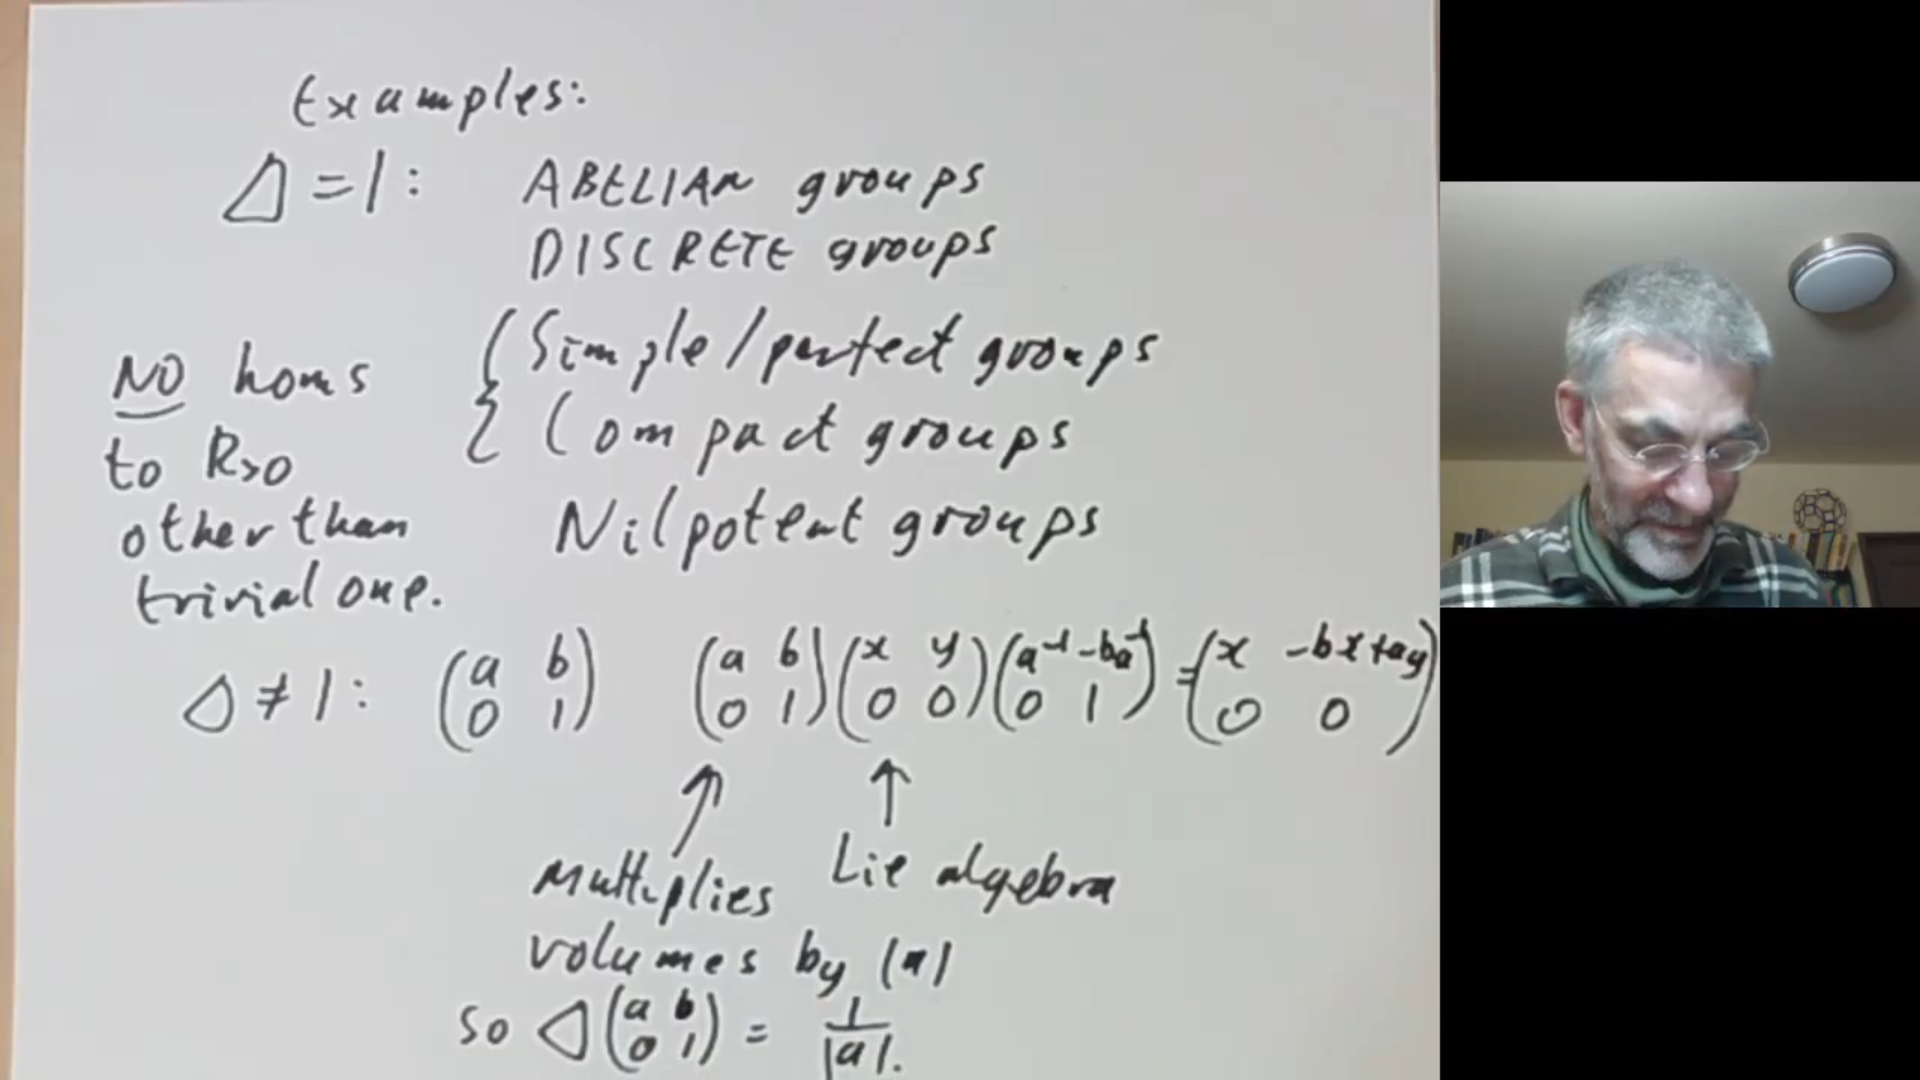 Examples:
Δ = 1: ABELIAN groups
DISCRETE groups
NO homs to R>0 other than trivial one. { Simple/perfect groups
Compact groups
Nilpotent groups
Δ ≠ 1: (a b / 0 1) (a b / 0 1)(x y / 0 0)(a⁻¹ -ba⁻¹ / 0 1) = (x -bx+ay / 0 0)
↑ ↑
multiplies Lie algebra
volumes by |a|
so Δ(a b / 0 1) = 1/|a|.